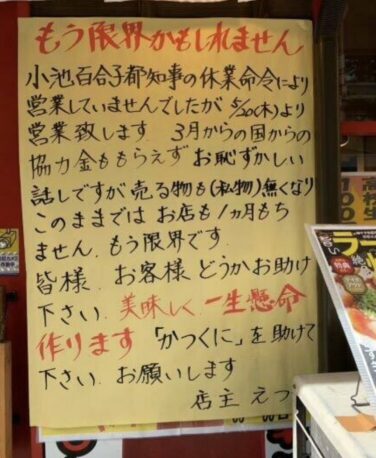 もう限界かもしれません
小池百合子都知事の休業命令により
営業していませんでしたが 5/20(木)より
営業致します 3月からの国からの
協力金ももらえず お恥ずかしい
話しですが 売る物も(私物)無くなり
このままでは お店も1ヵ月もち
ません. もう限界です.
皆様. お客様 どうかお助け
下さい. 美味しく 一生懸命
作ります 「かつくに」を助けて
下さい. お願いします
店主 えつ